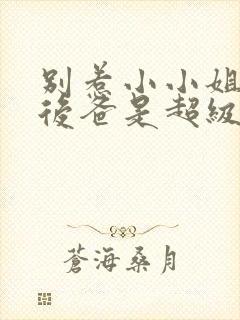 別惹小小姐
後爸是超級
蒼海桑月